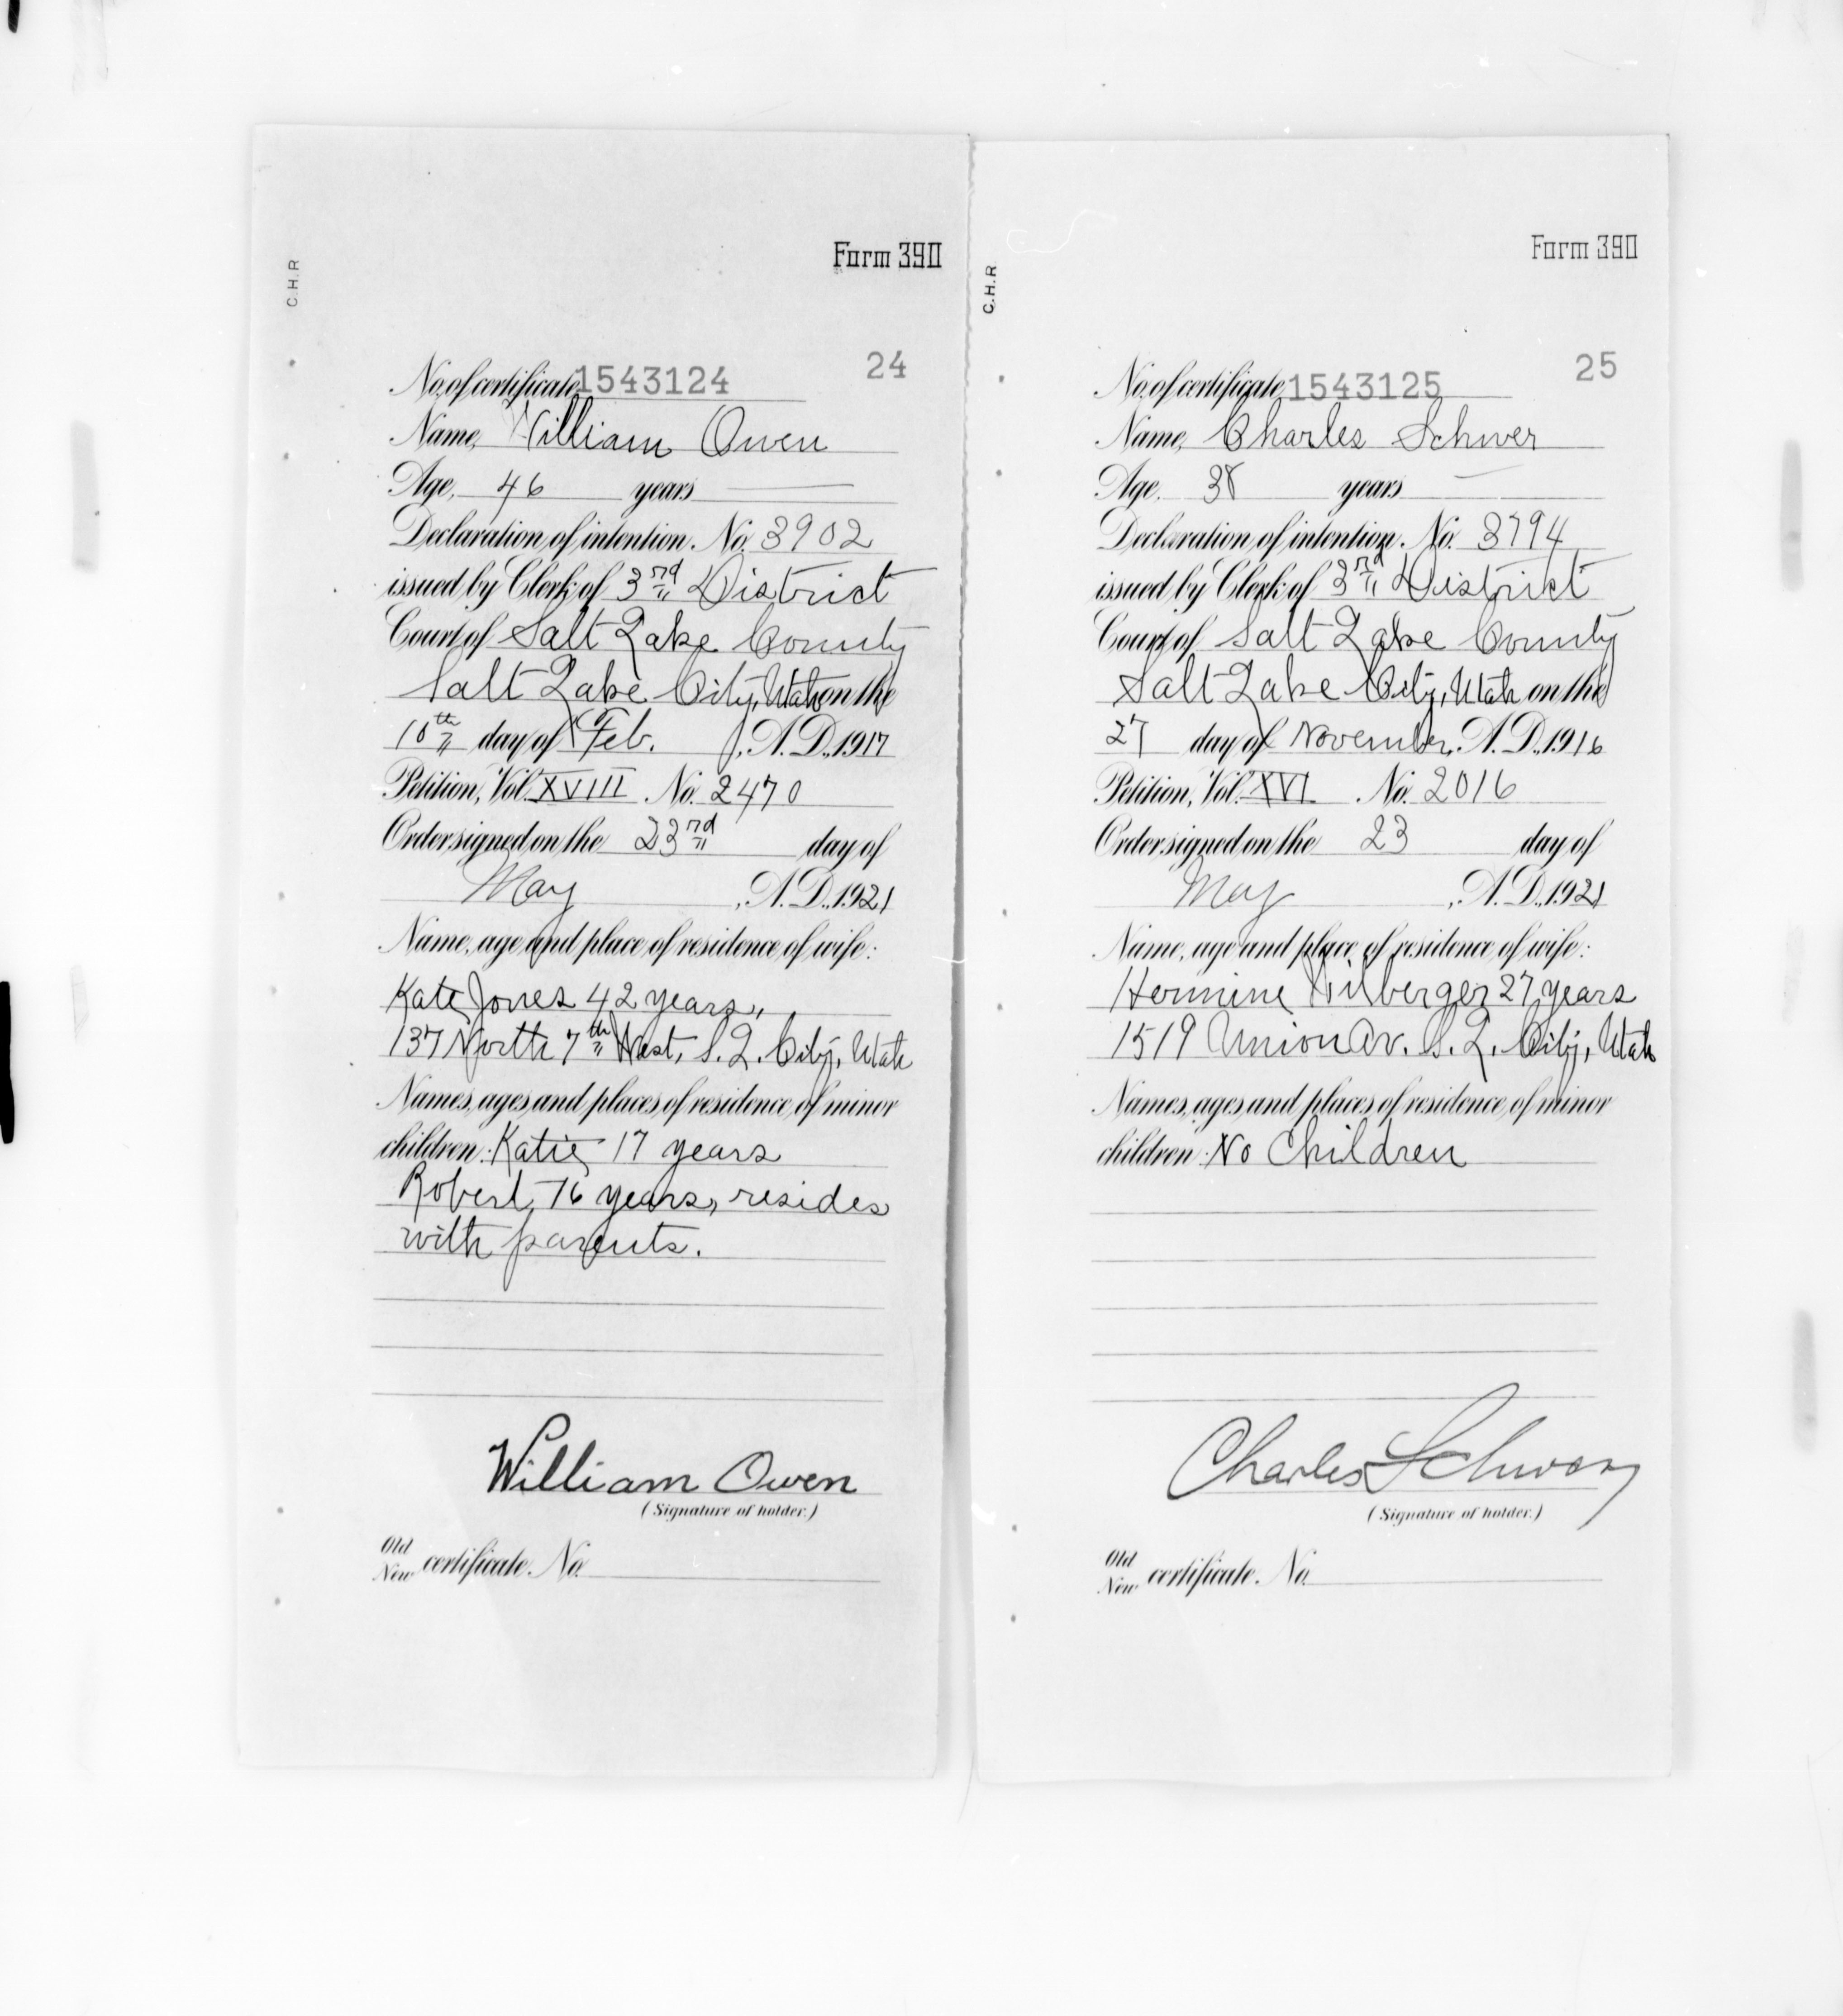 C.H.R
Form 390
24
No. of certificate, 1543124
Name, William Owen
Age, 46 years
Declaration of intention. No. 3902
issued by Clerk of 3rd District
Court of Salt Lake County
Salt Lake City, Utah on the
10th day of Feb. , A. D., 1917
Petition, Vol. XVIII No. 2470
Order signed on the 23rd day of
May , A. D., 1921
Name, age and place of residence of wife:
Kate Jones 42 years,
137 North 7th West, S. L. City, Utah
Names, ages and places of residence of minor
children: Katie 17 years
Robert, 16 years, resides
with parents.
William Owen
(Signature of holder.)
Old
New certificate. No.
C.H.R
Form 390
25
No. of certificate, 1543125
Name, Charles Schwer
Age, 38 years
Declaration of intention. No. 3794
issued by Clerk of 3rd District
Court of Salt Lake County
Salt Lake City, Utah on the
27 day of November, A. D., 1916
Petition, Vol. XVI No. 2016
Order signed on the 23 day of
May , A. D., 1921
Name, age and place of residence of wife:
Hermine 27 years
1519 Union Av. S. L. City, Utah
Names, ages and places of residence of minor
children: No Children
Charles
(Signature of holder.)
Old
New certificate. No.